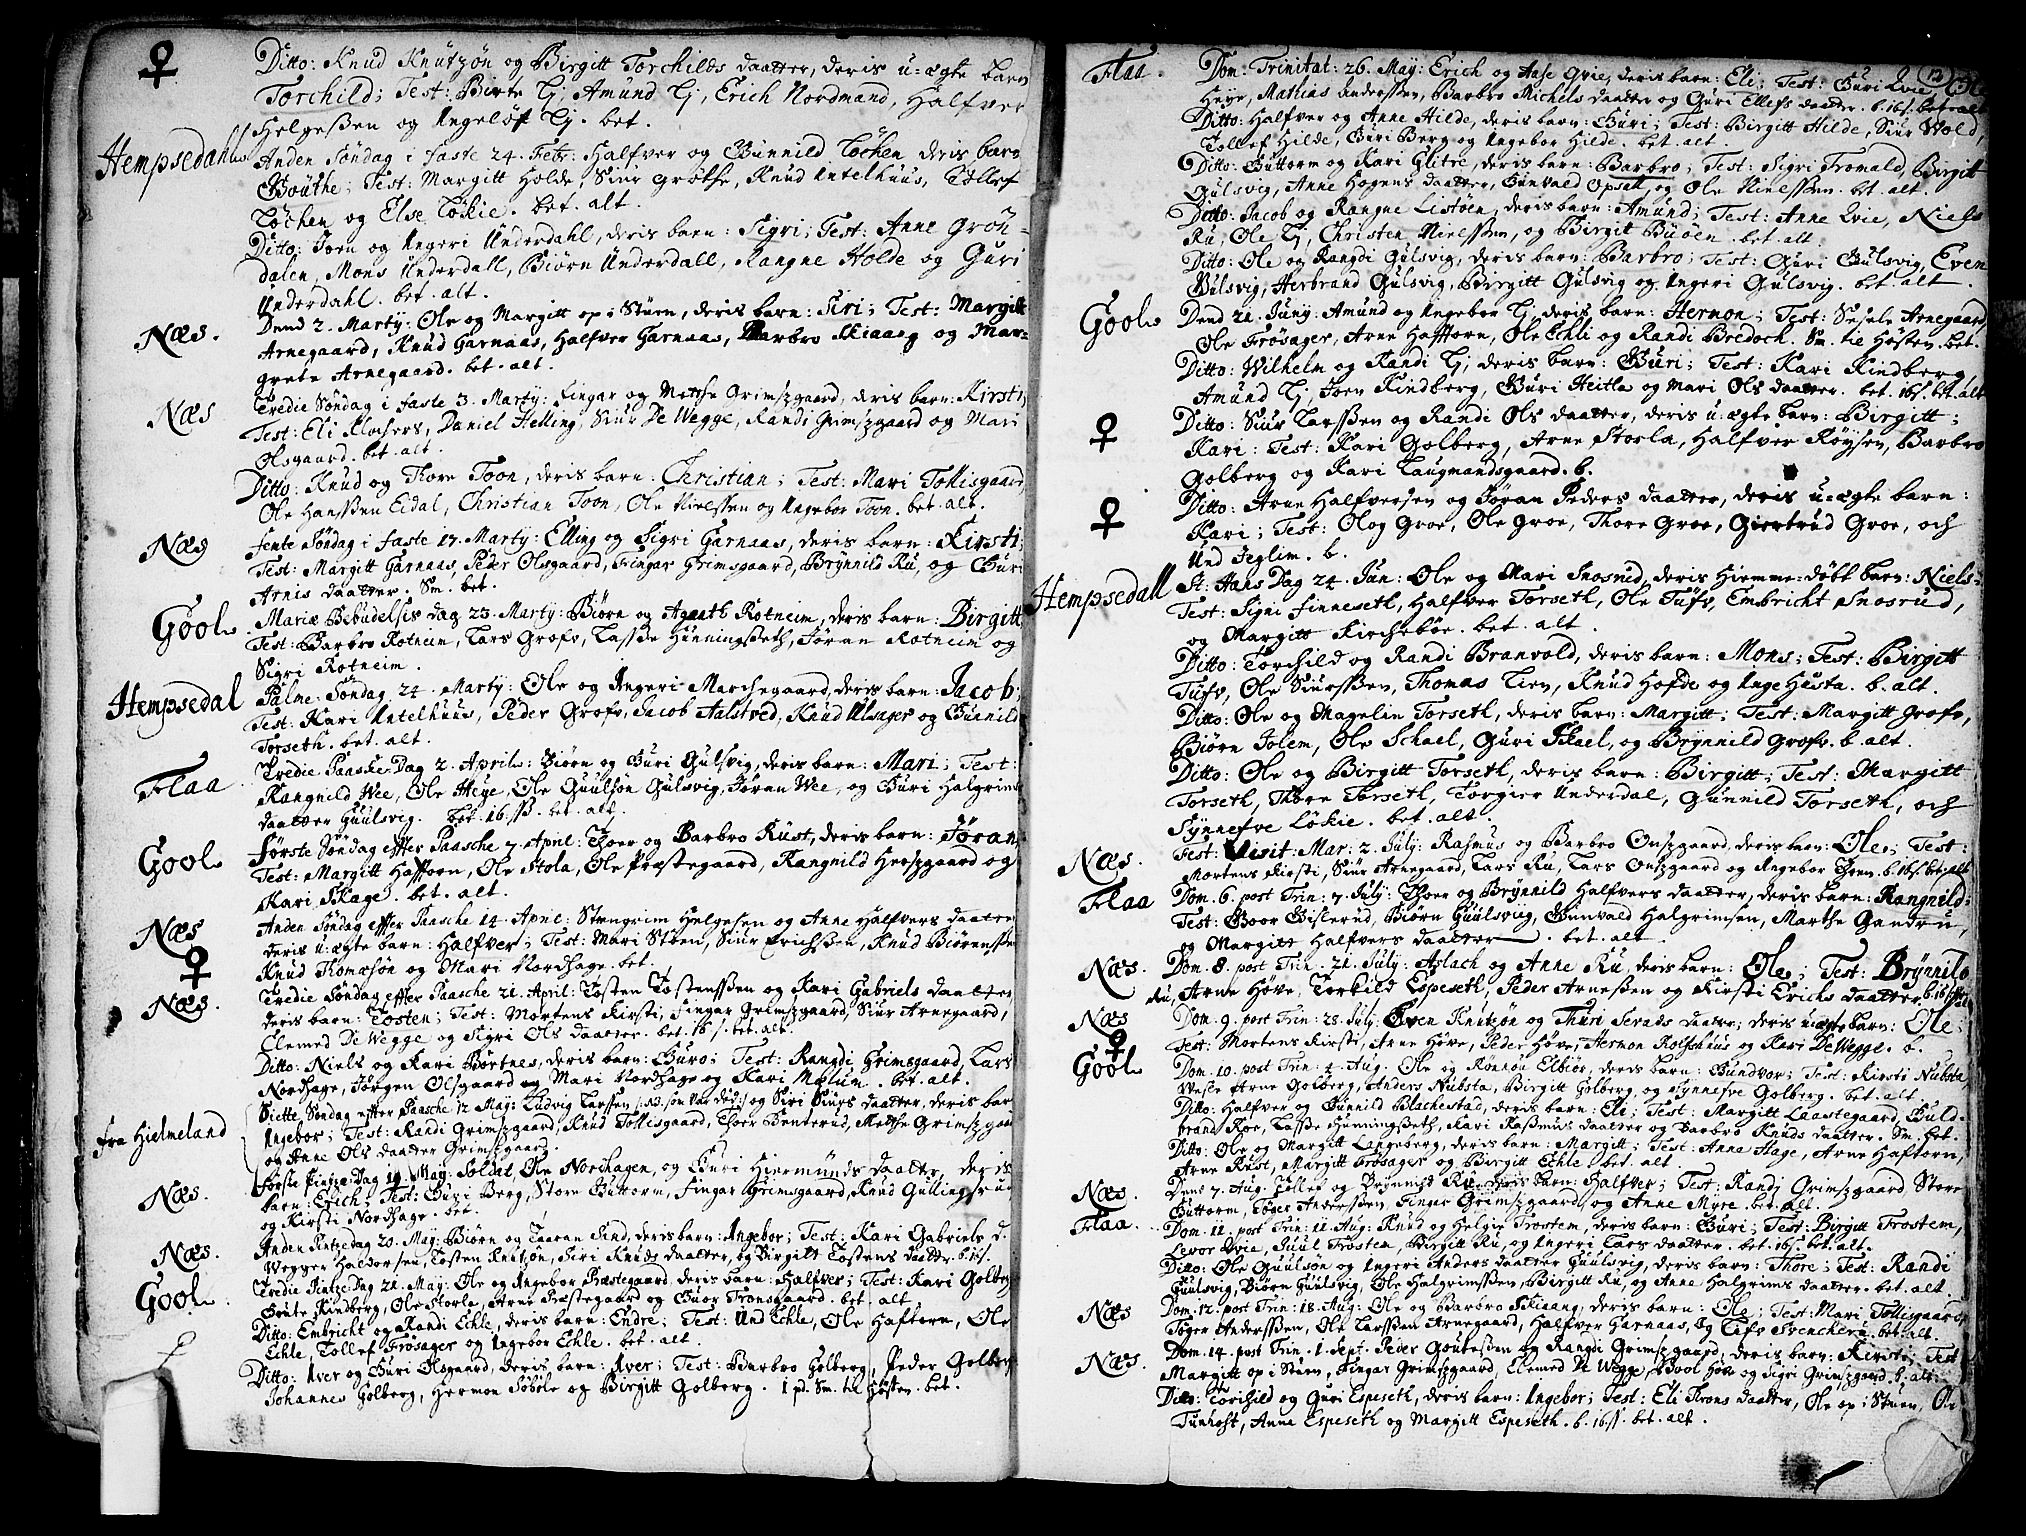 ♀ Ditto: Knud Knutzøn og Birgitt Torchilds daatter, deris u=ægte barn
Torchild; Test: Birte Lj, Amund Lj, Erich Nordmand, Halfver
Helgeßen og Ingeløf Lj. bet.
Hempsedahl Anden Søndag i faste 24. Febr: Halfver og Gunnild Løchen deris barn
Gouthe; Test: Margitt Holde, Siur Grøthe, Knud Intelhuus, Tollef
Løchen og Else Løkie. bet. alt.
Ditto: Joen og Ingeri Underdahl, deris barn: Sigri; Test: Anne Grøn=
dalen, Mons Underdall, Biørn Underdall, Rangne Holde og Guri
Underdahl. bet. alt.
Næs. Dend 2. Marty: Ole og Margitt op i Stuen, deris barn: Siri; Test: Margitt
Arnegaard, Knud Garnaas, Halfver Garnaas, Barbro Skiaang og Mar=
grete Arnegaard. bet. alt.
Næs Tredie Søndag i faste 3. Marty: Fingar og Metthe Grimszgaard, deris barn: Kirsti,
Test: Eli Klochers, Daniel Helling, Siur De Wegge, Randi Grimszgaard og Mari
Olsgaard. bet. alt.
Ditto: Knud og Thore Toon, deris barn: Christian; Test: Mari Tollisgaard,
Ole Hanssen Eidal, Christian Toon, Ole Nielssen og Ingebor Toon. bet. alt.
Næs femte Søndag i faste 17. Marty: Elling og Sigri Garnaas, deris barn: Kirsti;
Test: Margitt Garnaas, Peder Olsgaard, Fingar Grimsgaard, Brynnild Ru, og Guri
Arnes daatter. Sm. bet.
Gool Mariæ Bebudelsis dag 23. Marty: Biørn og Agaath Rotneim, deris barn: Birgitt,
Test: Barbro Rotneim, Lars Grofv, Lasse Hunningsseth, Jøran Rotneim og
Sigri Rotneim.
Hempsedal Palme-Søndag 24. Marty: Ole og Ingeri Marchegaard, deris barn: Jacob;
Test: Kari Intelhuus, Peder Grofv, Jacob Aalstved, Knud Ulsager og Gunnild
Torseth. bet. alt.
Flaa Tredie Paaske-Dag 2. April: Biørn og Guri Gulsvig, deris barn: Mari; Test:
Rangnild Wee, Ole Heye, Ole Guulsøn Gulsvig, Jøran Wee, og Guri Halgrims
daatter Guulsvig. bet. 16 ß. bet. alt.
Gool Første Søndag effter Paasche 7. April: Thoer og Barbro Rust, deris barn: Jøran;
Test: Margitt Hafftorn, Ole Stola, Ole Præstegaard, Rangnild Herszgaard og
Kari Skage. bet. alt.
Næs ♀ Anden Søndag effter Paasche 14. April: Stengrim Helgesen og Anne Halfvers daatter
deris u:ægte barn: Halfver; Test: Mari Støen, Siur Erichssen, Knud Biørenssen
Knud Thomæsøn og Mari Nordhage. bet.
Næs. Tredie Søndag effter Paasche 21. April: Tosten Tostenssen og Kari Gabriels daatter
deris barn: Tosten; Test: Mortens Kirsti, Fingar Grimszgaard, Siur Arnegaard,
Elemed De Wegge og Sigri Ols daatter. bet. 16 ß. bet. alt.
Ditto: Niels og Kari Børtnes, deris barn: Guro; Test: Rangdi Grimsgaard, Lars
Nordhage, Jørgen Olsgaard og Mari Nordhage og Kari Mætun. bet. alt.
fra Hielmeland Siette Søndag effter Paasche 12 May: Ludvig Larssen og Siri Siurs daatter, deris barn
Ingebor; Test: Randi Grimszgaard, Knud Tollisgaard, Thoer Benterud, Metthe Grimszgaard
og Anne Ols daatter Grimszgaard.
Næs. første Pintze-Dag 19. May: Soldat Ole Nordhagen, og Guri Hiermunds daatter, deris
barn: Erich; Test: Guri Berg, Store Guttorm, Fingar Grimsgaard, Knud Gullingsrud
og Kirsti Nordhage. bet.
Næs. Anden Pintzedag 20. May: Biørn og Taaran Sind, deris barn: Ingebor; Test: Kari Gabriels d.
Wegger Haldorsen, Tosten Knutzøn, Siri Knuds daatter, og Birgitt Tostens daatter. b. 16 ß.
Gool Tredie Pintze-Dag 21. May: Ole og Ingebor Præstegaard, deris barn: Halfver; Test: Kari Golberg
Gøute Kindberg, Ole Storla, Arne Præstegaard og Guor Tronsgaard. bet. alt.
Ditto: Embricht og Randi Echle, deris barn: Endre; Test: Und Echle, Ole Haftorn, Ole
Echle, Tollef Frøsager og Ingebor Echle. bet. alt.
Ditto: Iver og Guri Olsgaard, deris barn: Iver; Test: Barbro Golberg, Peder Golberg
Johannes Golberg, Hermon Søbøle og Birgitt Golberg. 1 pd. Sm. til Høsten. bet.
12
Flaa. Dom: Trinitat: 26. May: Erich og Aase Qvie, deris barn: Eli; Test: Guri Qvie, Ole
Heye, Mathias Anderssen, Barbro Michels daatter og Guri Ellefs daatter. b. 16 ß. bet. alt
Ditto: Halfver og Anne Hilde, deris barn: Guri; Test: Birgitt Hilde, Siur Wold,
Tollef Hilde, Guri Berg og Ingebor Hilde. bet. alt.
Ditto: Guttorm og Kari Glitre, deris barn: Barbro; Test: Sigri Tromald, Birgitt
Gulsvig, Anne Hogens daatter, Gunvald Opsall, og Ole Nielssen. bt. alt.
Ditto: Jacob og Rangne Listøen, deris barn: Amund; Test: Anne Qvie, Niels
Ru, Ole Lj, Christen Nielssen, og Birgit Buøen. bet. alt.
Ditto: Ole og Rangdi Gulsvig, deris barn: Barbro; Test: Guri Gulsvig, Even
Gulsvig, Herbrand Gulsvig, Birgitt Gulsvig og Ingeri Gulsvig. bet. alt.
Gool Dend 21. Juny: Amund og Ingebor Lj, deris barn: Hermon; Test: Sesele Arnegaard,
Ole Frøsager, Arne Hafftorn, Ole Echli og Randi Bredoch. Sm. til Høsten. bet.
Ditto: Wilhelm og Randi Lj, deris barn: Guri; Test: Kari Kindberg,
Amund Lj, Joen Kindberg, Guri Heitla og Mari Ols daatter. bet. 16 ß. bet. alt
♀ Ditto: Siur Larssen og Randi Ols daatter, deris u:ægte barn: Birgitt;
Kari: Test: Kari Golberg, Arne Storla, Halfver Røysen, Barbro
Golberg og Kari Laugmandsgaard. b.
♀ Ditto: Arne Halfversen og Jøran Peders daatter, deris u:ægte barn:
Kari; Test: Olog Groe, Ole Groe, Thore Groe, Giertrud Groe, och
Und Jeglim. b.
Hempsedall St: Hans Dag 24. Jun: Ole og Mari Snosrud, deris Hiemme=døbt barn: Niels;
Test: Signi Finneseth, Halfver Torseth, Ole Tufv, Embricht Snosrud,
og Margitt Kirchebøe. bet. alt.
Ditto: Torchild og Randi Branvold, deris barn: Mons; Test: Birgitt
Tufv, Ole Siurssen, Thomas Lien, Knud Hofde og Inge Husta. b. alt.
Ditto: Ole og Magelin Torseth, deris barn: Margitt; Test: Margitt Grofv,
Biørn Jolem, Ole Schael, Guri Skael, og Brynnild Grofv. b. alt.
Ditto: Ole og Birgitt Torseth, deris barn: Birgitt; Test: Margitt
Torseth, Thore Torseth, Torgier Underdal, Gunnild Torseth, och
Synnefve Løkie. bet. alt.
Næs. Fest: Visit: Mar: 2. July: Rasmus og Barbro Onszgaard, deris barn: Ole; Test:
Mortens Kirsti, Siur Arnegaard, Lars Ru, Lars Onszgaard og Ingebor Thoen. b. 16 ß. bet. alt
Flaa Dom. 6. post Trin: 7. July: Thoer og Brynnild Halfvers daatter, deris barn: Rangnild:
Test: Goor Gislerud, Biørn Guulsvig, Gunvald Halgrimsen, Marthe Gandru,
og Margitt Halfvers daatter. bet. alt.
Næs. Dom. 8. post Trin. 21. July: Aslach og Anne Ru, deris barn: Ole; Test: Brynnild
Ru, Arne Høve, Torkild Espeseth, Peder Arneßen og Kirsti Erichs daatter. b. 16 ß.
Næs ♀ Dom. 9. post Trin: 28. July: Even Knutzøn og Thuri Iverds daatter; deris u:ægte barn: Ole;
Test: Mortens Kirsti, Arne Høve, Peder Høve, Hermon Rolfshuus og Kari De Wegge. b.
Gool Dom. 10. post Trin: 4. Aug. Ole og Rønnou Elbiør, deris barn: Gundvor; Test: Kirsti Nubsta,
Wesle Arne Golberg, Anders Nubsta, Birgitt Golberg, og Synnefve Golberg. bet. alt.
Ditto: Halfver og Gunnild Blachestad, deris barn: Eli; Test: Margitt Laastegaard, Guld=
brand Roe, Lasse Hunningsseth, Kari Rasmus daatter og Barbro Knuds daatter. Sm. bet.
Ditto: Ole og Margitt Langeberg, deris barn: Margitt; Test: Anne Hage, Arne Haftorn,
Arne Rust, Margitt Frøsager og Birgitt Echle. bet. alt.
Næs. Dend 7. Aug. Tollef og Brynnild Ru, deris barn: Halfver; Test: Randj Grimszgaard, Store
Guttorm, Toger Anderssen, Finger Grimszgaard, og Anne Myre. bet. alt.
Flaa. Dom. 11. post Trin: 11. Aug: Knud og Helgie Trostem, deris barn: Guri; Test: Birgitt Trostem,
Levor Qvie, Juul Trostem, Birgitt Ru, og Ingeri Lars daatter. bet. 16 ß. bet. alt.
Ditto: Ole Guulsøn og Ingeri Anders daatter Guulsvig, deris barn: Thore; Test: Randi
Guulsvig, Biørn Guulsvig, Ole Halgrimssen, Birgitt Ru, og Anne Halgrims daatter. bet. alt.
Næs Dom. 12. post Trin: 18. Aug: Ole og Barbro Skiaang, deris barn: Ole; Test: Mari Tollisgaard,
Toger Anderssen, Ole Larssen Arnegaard, Halfver Garnaas, og Lifv Svenchern. bet. alt.
Næs. Dom. 14. post Trin. 1. Sept: Peder Goutessen og Rangdi Grimszgaard, deris barn: Kirsti; Test
Margitt op i Stuen, Fingar Grimszgaard, Elemed De Wegge, Bool Høve og Sigri Grimszgaard. b. alt.
Ditto: Torchild og Guri Espeseth, deris barn: Ingebor; Test: Eli Trons daatter, Ole op i Stuen, Ole
Tunhoft, Anne Espeseth og Margitt Espeseth. b. 16 ß. bet. alt.